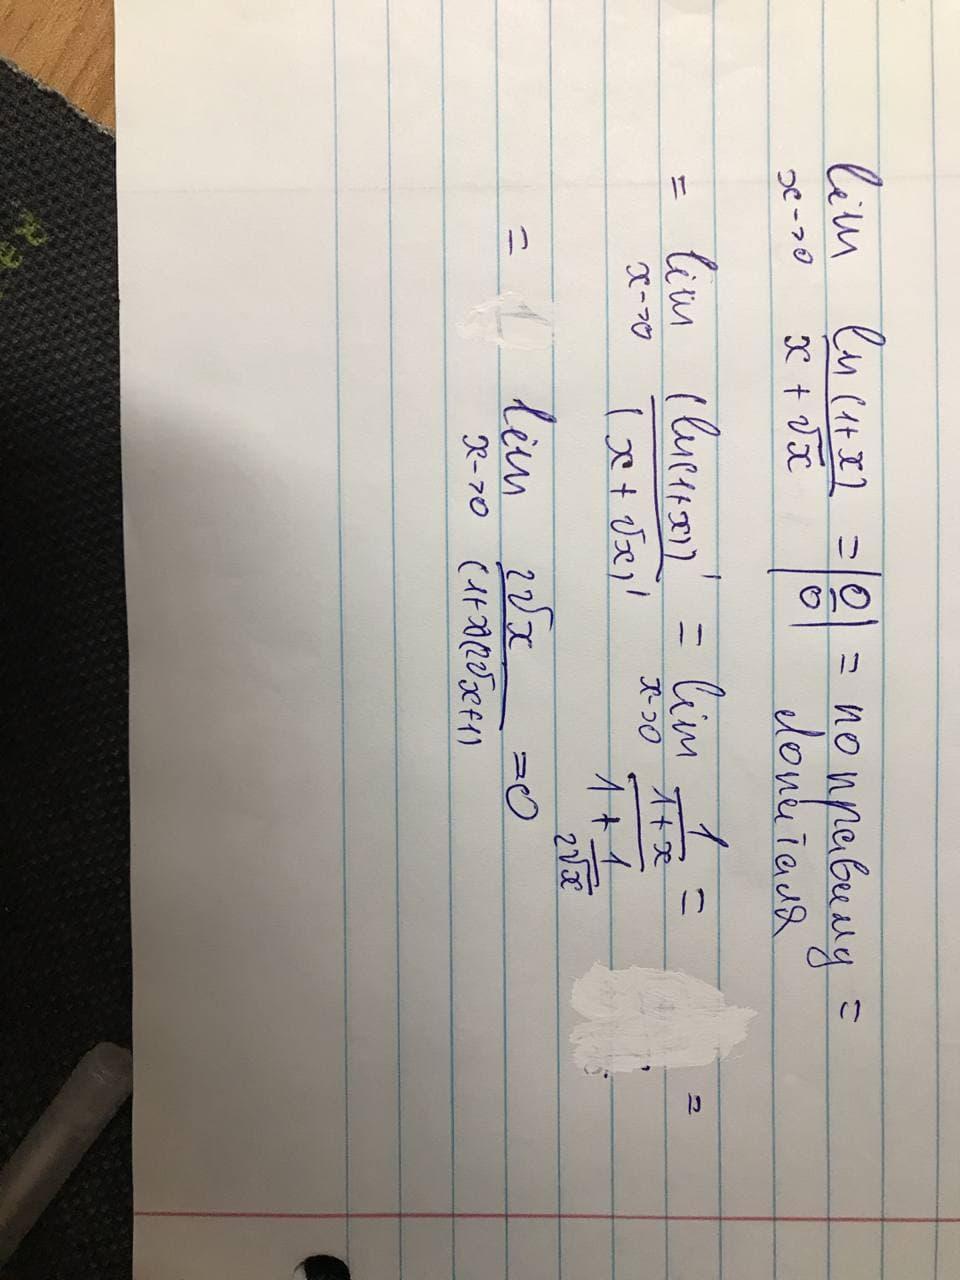 lim x→0 ln(1+x) / x+√x = |0/0| = по правилу Лопиталя =
= lim x→0 (ln(1+x))' / (x+√x)' = lim x→0 1/(1+x) / 1+1/(2√x) = =
= lim x→0 2√x / (1+x)(2√x+1) = 0